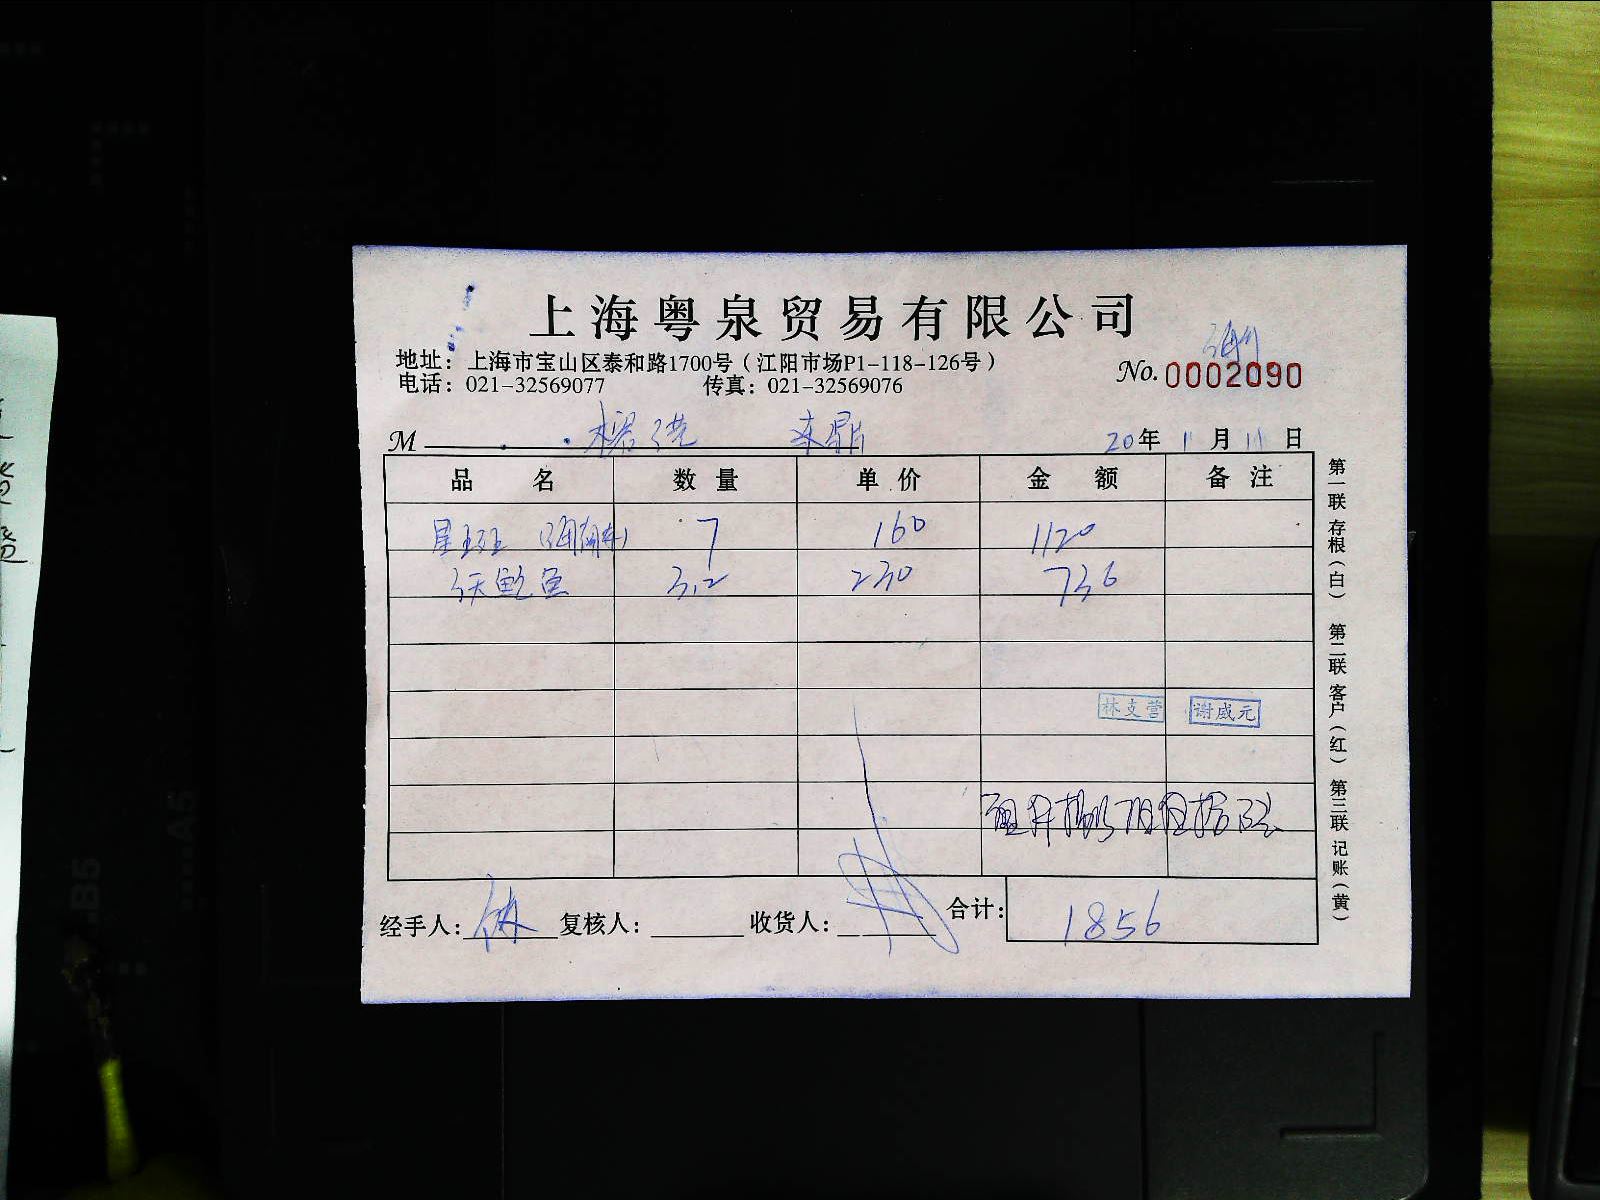 上海粤泉贸易有限公司
地址：上海市宝山区泰和路1700号（江阳市场P1-118-126号）
电话：021-32569077 传真：021-32569076
No.0002090
M
20年11月11日
品 名 数 量 单 价 金 额 备 注
星斑 7 160 1120
鲍鱼 3.2 230 736
林支营 谢威元
经手人：林 复核人： 收货人： 合计：1856
第一联 存根（白） 第二联 客户（红） 第三联 记账（黄）